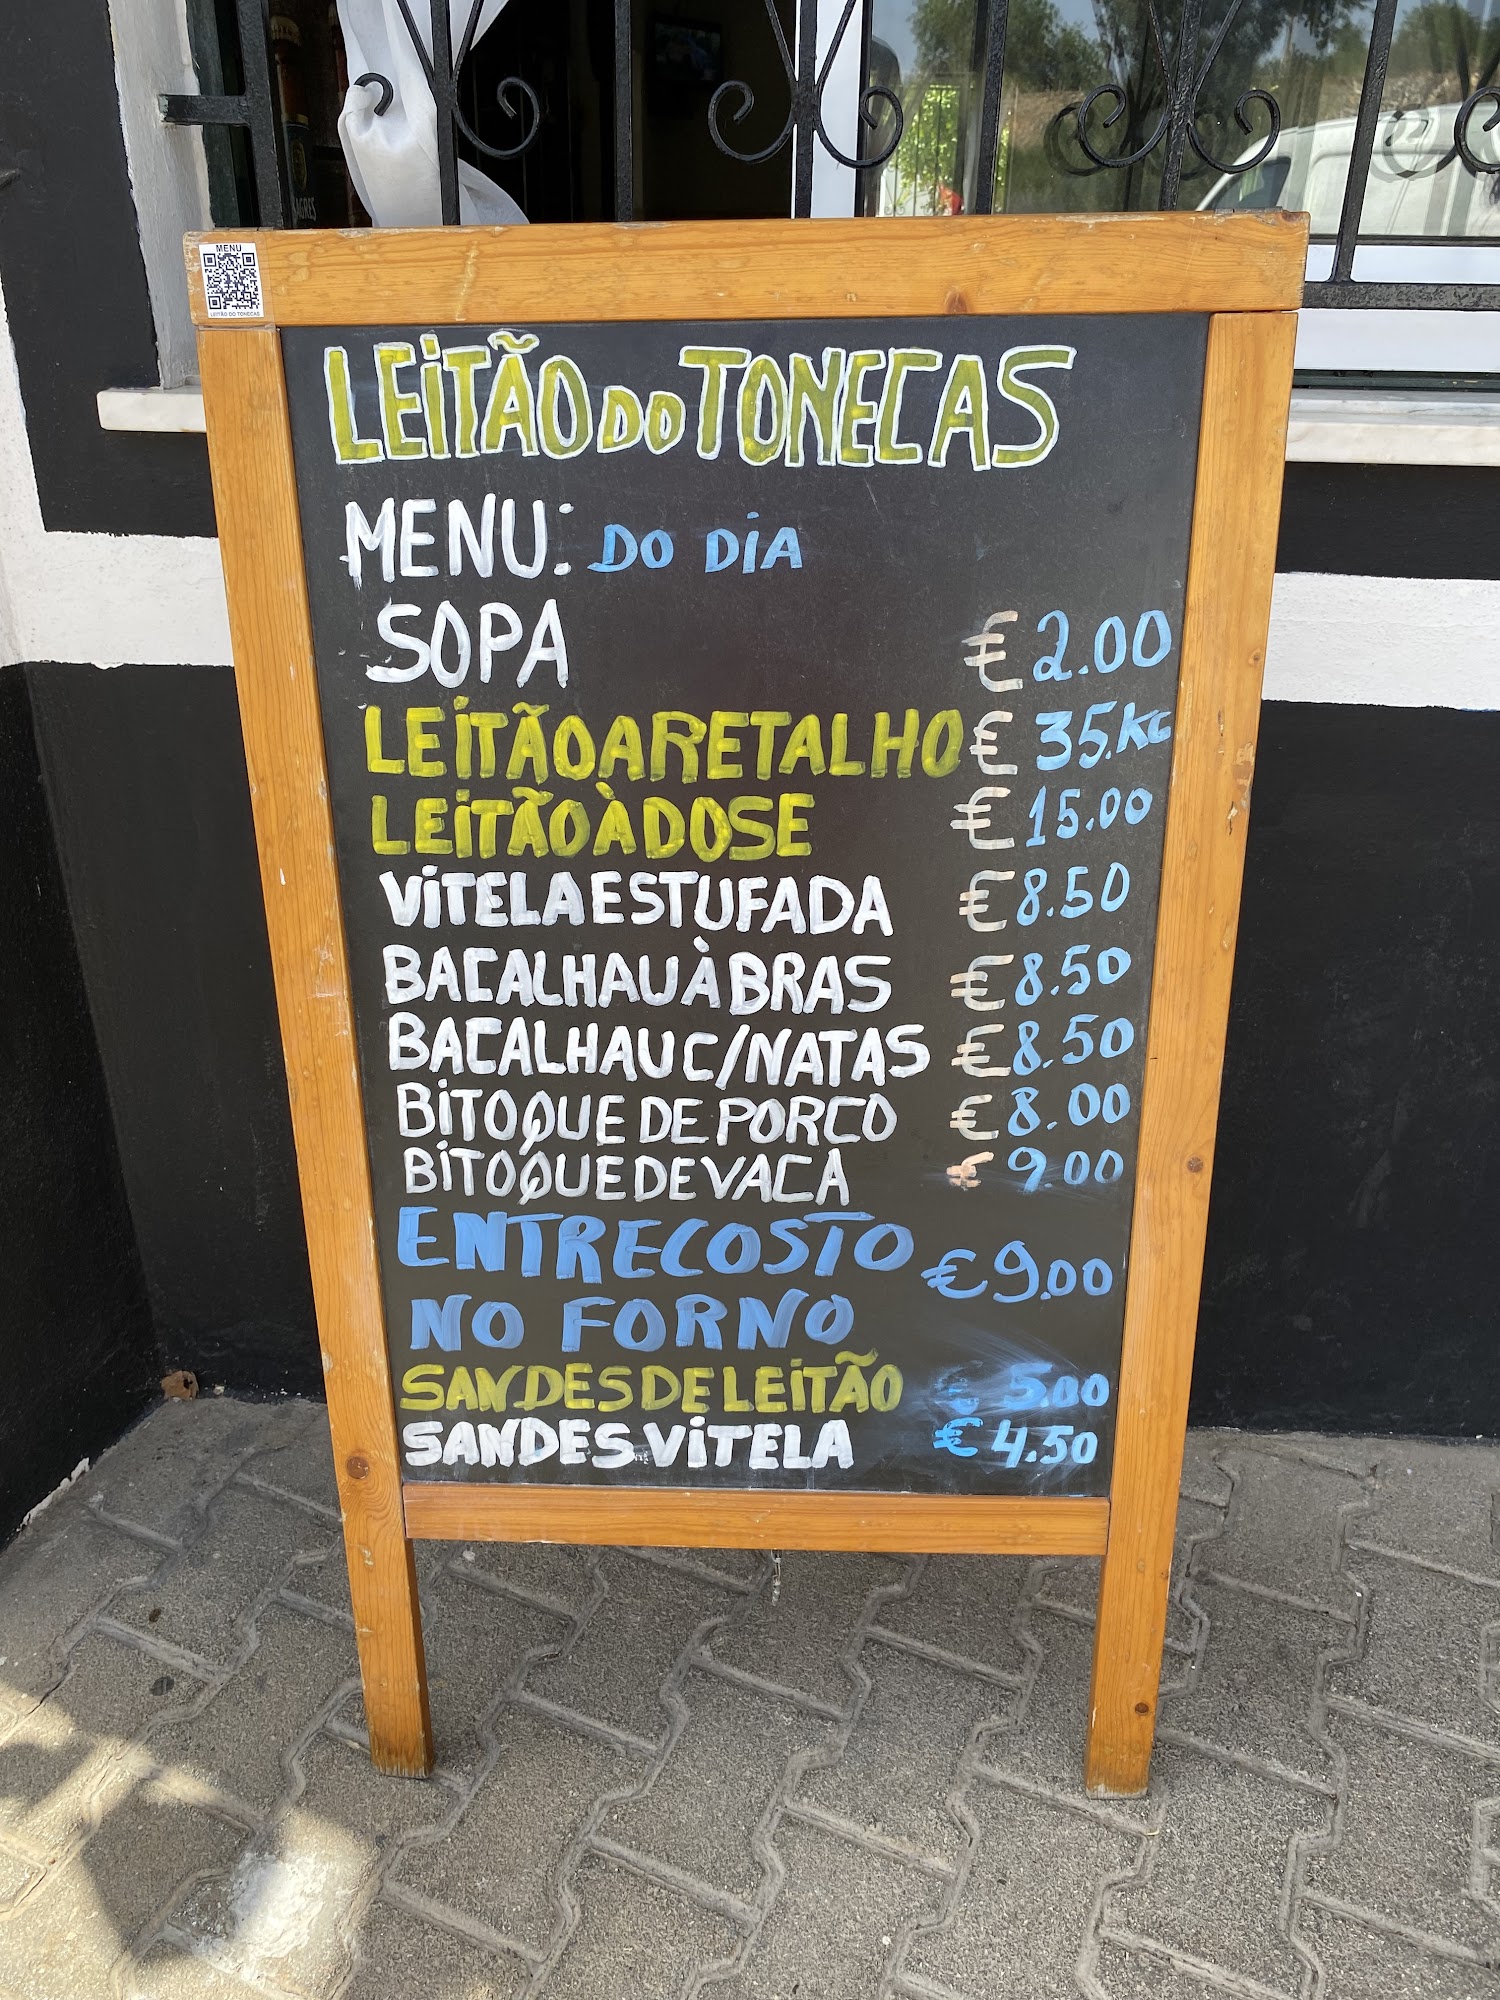 AGRES
MENU
LEITÃO DO TONECAS
LEiTÃO DO TONECAS
MENU: DO DiA
SOPA € 2.00
LEiTÃO A RETALHO € 35.KG
LEiTÃO À DOSE € 15.00
ViTELA ESTUFADA € 8.50
BACALHAU À BRAS € 8.50
BACALHAU C/NATAS € 8.50
BiTOQUE DE PORCO € 8.00
BiTOQUE DE VACA € 9.00
ENTRECOSTO
NO FORNO € 9,00
SANDES DE LEiTÃO € 5.00
SANDES ViTELA € 4.50